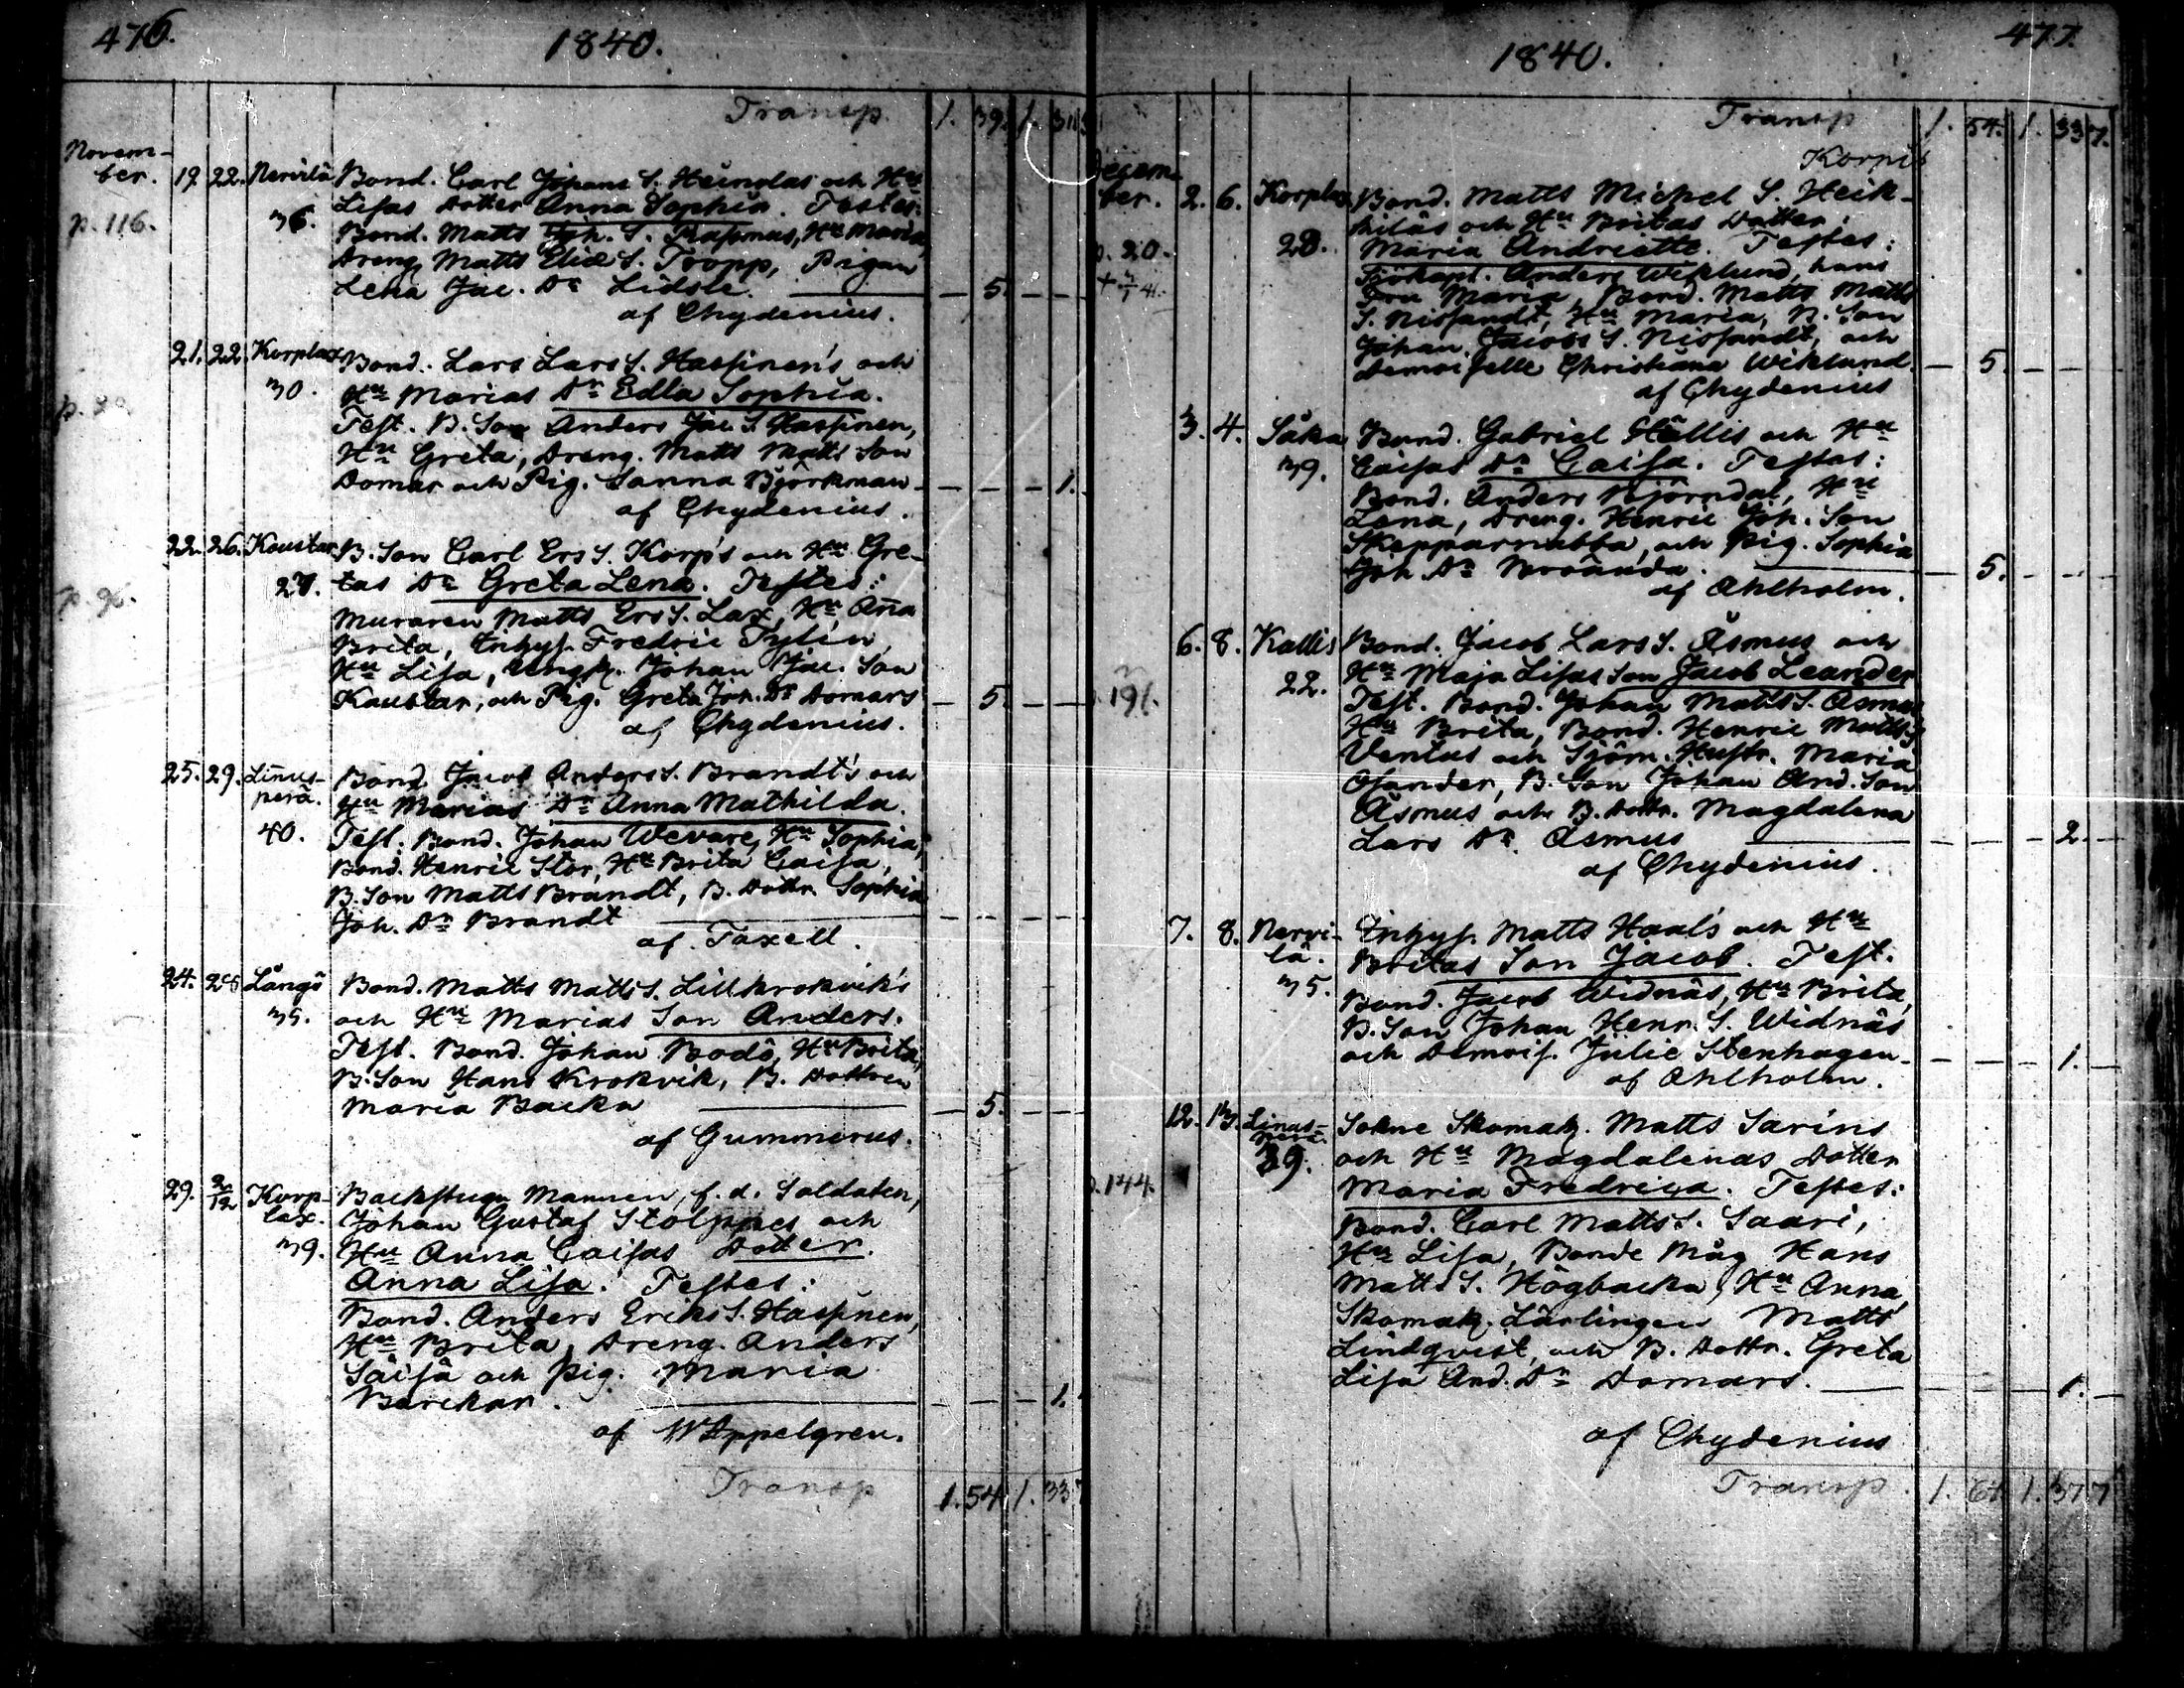 476.
1840.
Transp. 1. 39. 1. 31
Novem-
ber. 19. 22. Nervilä Bond. Carl Johans S. Heinolas och Hu
p. 116. 36. Lisas Dotter Anna Sophia. Testes:
Bond. Matts Joh. S. Rasmus, Hu Maria,
Dreng Matts Eliæ S. Tropp, Pigan
Lena Jac. Dr Lidsle. — 5. — —
af Chydenius.
21. 22. Korplax Bond. Lars Lars S. Hassinen's och
30. Hu Marias Dr Edla Sophia.
Test. B. Son Anders Jac S. Hassinen,
Hu Greta, Dreng. Matts Matts Son
Domar och Pig. Sanna Björkman — — — 1.
af Chydenius.
22. 26. Koustar B. Son Carl Ers S. Korp's och Hu Gre-
p. 96. 27. tas Dr Greta Lena. Testes:
Muraren Matts Ers S. Lax, Hu Ana
Brita, Inhys. Fredric Tylin,
Hu Lisa, Ungk. Johan Jac. Son
Kaustar, och Pig. Greta Joh. Dr Domars — 5. — —
af Chydenius.
25. 29. Linus-
perä. Bond Jacob Anders S. Brandt's och
Hu Marias Dr Anna Mathilda.
40. Test. Bond. Johan Wevare, Hu Sophia,
Bond. Henric Stor, Hu Brita Caisa,
B. Son Matts Brandt, B. Dottr. Sophia
Joh. Dr Brandt — — — —
af Taxell.
24. 28 Långö Bond. Matts Matts S. Lillkrokvik's
35. och Hu Marias Son Anders.
Test. Bond. Johan Bodö, Hu Brita,
B. Son Hans Krokvik, B. Dottren
Maria Backa — 5. — —
af Gummerus.
29. 2/12 Korp-
lax. Backstugu Mannen, f. d. Soldaten,
Johan Gustaf Stolpes och
39. Hu Anna Caisas Dotter.
Anna Lisa. Testes:
Bond. Anders Eriks S. Hassinen,
Hu Brita, Dreng. Anders
Säisä och Pig. Maria
Barckar. — — — 1.
af W Appelgren.
Transp 1. 54 1. 33
477.
1840.
Transp 1. 54. 1. 33 7.
Korpi
Decem-
ber. 2. 6. Korplax Bond. Matts Michel S. Heik-
p. 20. 28. kiläs och Hu Britas Dotter
Maria Andriette. Testes:
Sjökapt. Anders Wiklund, hans
Fru Maria, Bond. Matts Matts
S. Nissandt, Hu Maria, B. Son
Johan Jacobs S. Nissandt, och
Demoiselle Christiana Wiklund. — 5. — —
af Chydenius
3. 4. Såka Bond. Gabriel Hällis och Hu
39. Caisas Dr Caisa. Testes:
Bond. Anders Björndal, Hu
Lena, Dreng. Henric Joh. Son
Skepparnabba, och Pig. Sophia
Joh Dr — 5. — —
af Ahlholm.
6. 8. Kallis Bond. Jacob Lars S. Åsmus och
22. Hu Maja Lisas Son Jacob Leander
191. Test. Bond. Johan Matts S. Åsmus
Hu Brita, Bond. Henric Matts S
Ventus och Sjöm. Hustr. Maria
Osander, B. Son Johan And. Son
Åsmus och B. Dottr. Magdalena
Lars Dr. Åsmus — — — 2. —
af Chydenius.
7. 8. Nervi-
lä. Inhys. Matts Haals och Hu
Britas Son Jacob. Test.
35. Bond. Jacob Widnäs, Hu Brita,
B. Son Johan Henr. S. Widnäs
och Demois. Julie Stenhagen — — — 1. —
af Ahlholm.
12. 13. Linus-
perä. Sokne Skomak. Matts Sarins
39. och Hu Magdalenas Dotter
p. 144. Maria Fredrica. Testes:
Bond. Carl Matts S. Saari,
Hu Lisa, Bonde Måg Hans
Matts S. Högbacka, Hu Anna,
Skomak. Lärlingen Matts
Lindqvist, och B. Dottr. Greta
Lisa And. Dr Domars. — — — 1. —
af Chydenius
Transp. 1. 64 1. 37 7